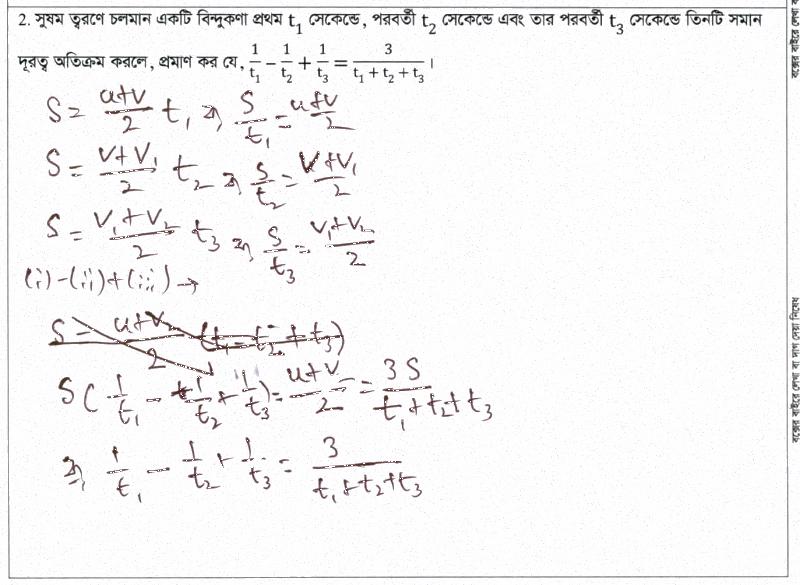 2. সুষম ত্বরণে চলমান একটি বিন্দুকণা প্রথম t₁ সেকেন্ডে, পরবর্তী t₂ সেকেন্ডে এবং তার পরবর্তী t₃ সেকেন্ডে তিনটি সমান
দূরত্ব অতিক্রম করলে, প্রমাণ কর যে, 1/t₁ − 1/t₂ + 1/t₃ = 3/(t₁ + t₂ + t₃)।
S = (u+v)/2 t₁ ⇒ S/t₁ = (u+v)/2
S = (v+v₁)/2 t₂ ⇒ S/t₂ = (v+v₁)/2
S = (v₁+v₂)/2 t₃ ⇒ S/t₃ = (v₁+v₂)/2
(i)-(ii)+(iii) →
S = (u+v₂)/2 (t₁ - t₂ + t₃)
S (1/t₁ - 1/t₂ + 1/t₃) = (u+v)/2 = 3S/(t₁+t₂+t₃)
⇒ 1/t₁ - 1/t₂ + 1/t₃ = 3/(t₁+t₂+t₃)
বক্সের বাইরে লেখা বা দাগ দেয়া নিষেধ